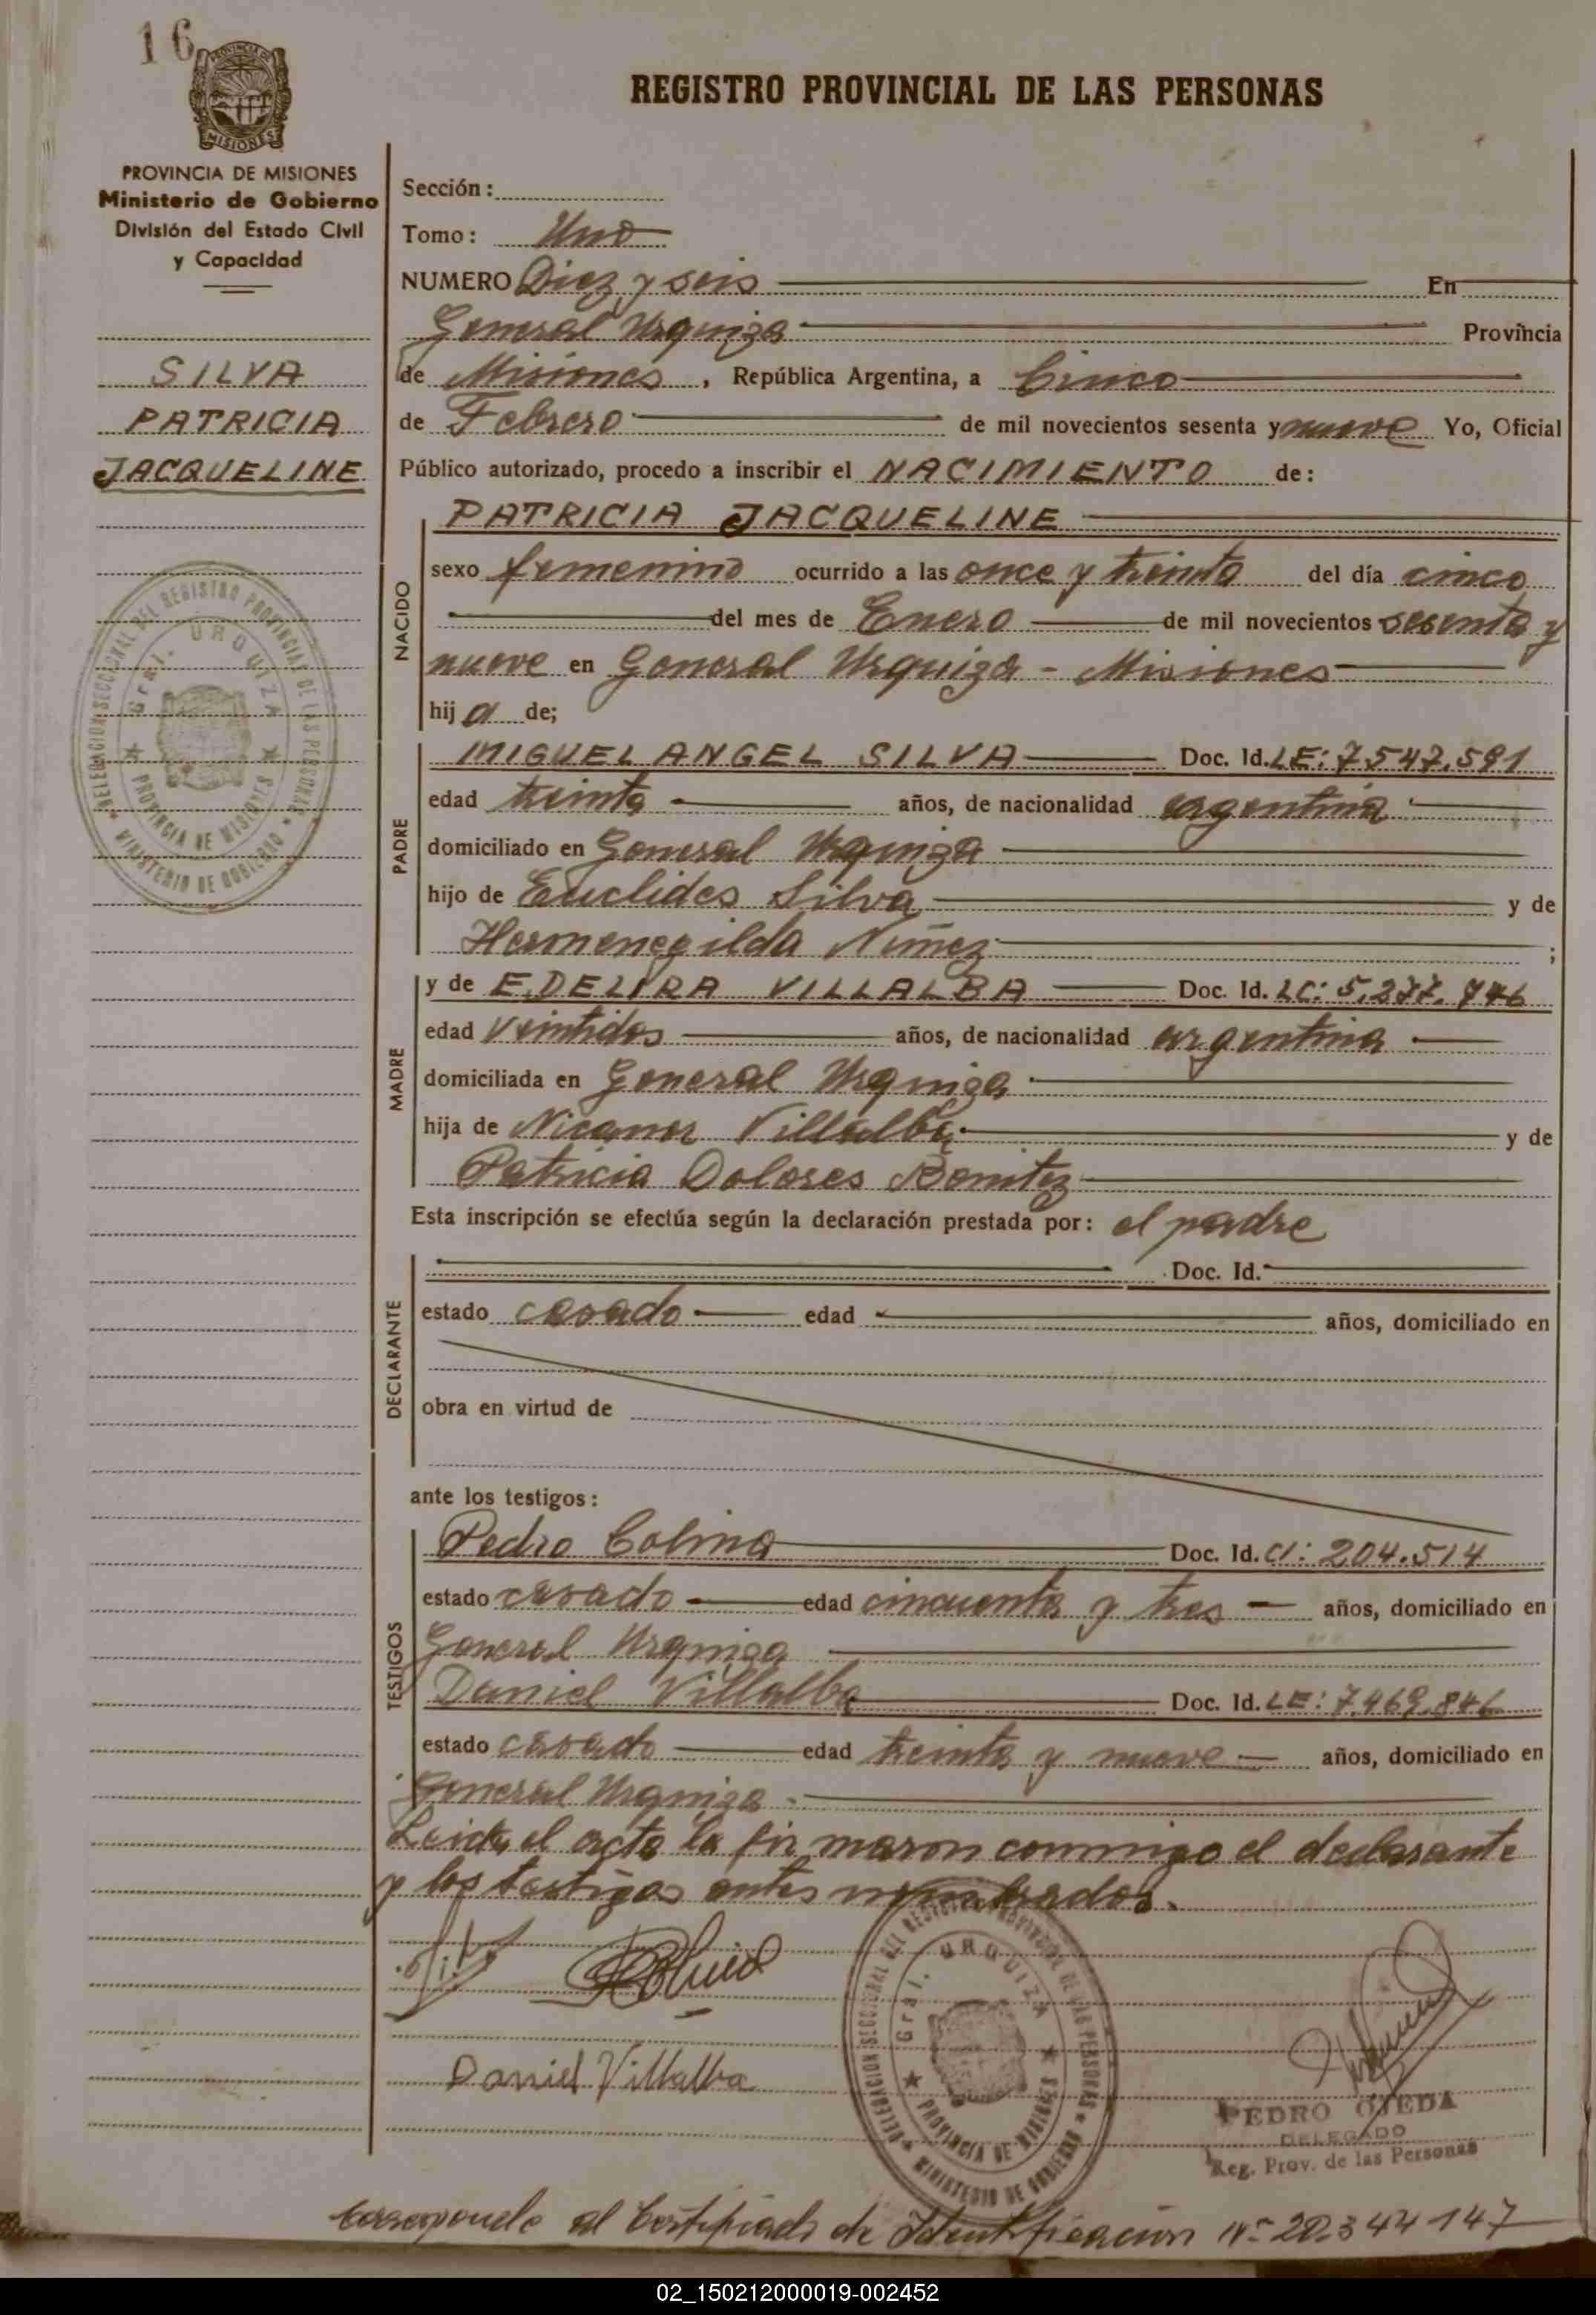 16
PROVINCIA DE MISIONES
Ministerio de Gobierno
División del Estado Civil
y Capacidad
SILVA
PATRICIA
JACQUELINE
DELEGACION SECCIONAL DEL REGISTRO PROVINCIAL DE LAS PERSONAS
Gral. URQUIZA
PROVINCIA DE MISIONES
MINISTERIO DE GOBIERNO
REGISTRO PROVINCIAL DE LAS PERSONAS
Sección:
Tomo: Uno
NUMERO Diez y seis En
General Urquiza Provincia
de Misiones, República Argentina, a Cinco
de Febrero de mil novecientos sesenta y nueve Yo, Oficial
Público autorizado, procedo a inscribir el NACIMIENTO de:
NACIDO
PATRICIA JACQUELINE
sexo femenino ocurrido a las once y treinta del día cinco
del mes de Enero de mil novecientos sesenta y
nueve en General Urquiza - Misiones
hija de;
PADRE
MIGUEL ANGEL SILVA Doc. Id. LE: 7.547.591
edad treinta años, de nacionalidad argentina
domiciliado en General Urquiza
hijo de Euclides Silva y de
Hermenegilda Niñez ;
MADRE
y de EDELIRA VILLALBA Doc. Id. LC: 5.277.746
edad veintidos años, de nacionalidad argentina
domiciliada en General Urquiza
hija de Nicanor Villalba y de
Patricia Dolores Benitez
Esta inscripción se efectúa según la declaración prestada por: el padre
DECLARANTE
Doc. Id.
estado casado edad años, domiciliado en
obra en virtud de
ante los testigos:
TESTIGOS
Pedro Colina Doc. Id. CI: 204.514
estado casado edad cincuenta y tres años, domiciliado en
General Urquiza
Daniel Villalba Doc. Id. LE: 7.469.846
estado casado edad treinta y nueve años, domiciliado en
General Urquiza
Leida el acta la firmaron conmigo el declarante
y los testigos antes nombrados.
Daniel Villalba
DELEGACION SECCIONAL DEL REGISTRO PROVINCIAL DE LAS PERSONAS
Gral. URQUIZA
PROVINCIA DE MISIONES
MINISTERIO DE GOBIERNO
PEDRO OJEDA
DELEGADO
Reg. Prov. de las Personas
Corresponde al Certificado de Identificacion Nº 20.344147
02_150212000019-002452